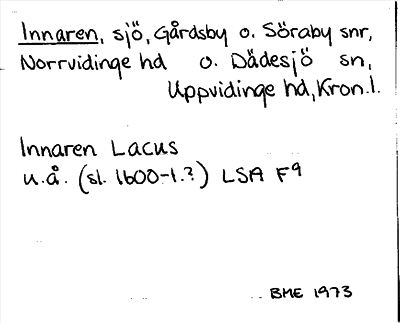 Innaren, sjö, Gårdsby o. Söraby snr,
Norrvidinge hd o. Dädesjö sn,
Uppvidinge hd, Kron. l.
Innaren Lacus
u.å. (sl. 1600-t.?) LSA F9
BME 1973